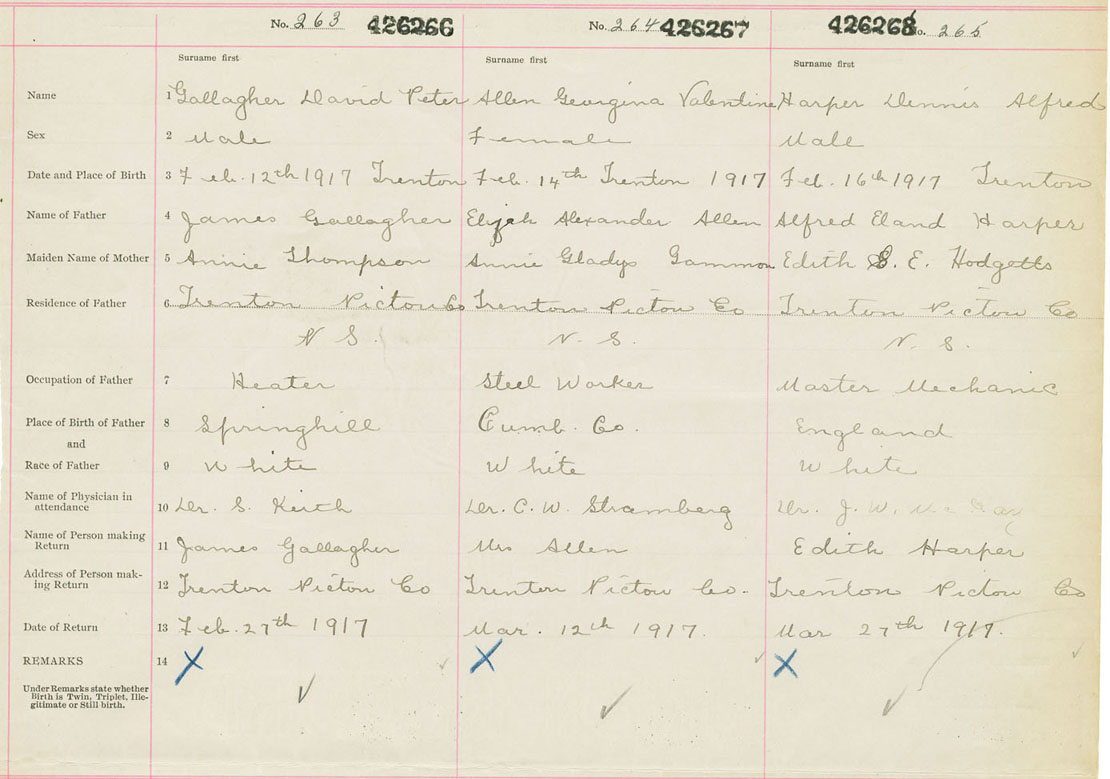 No. 263 426266 No. 264 426267 426268 No. 265
Surname first Surname first Surname first
Name 1 Gallagher David Peter Allen Georgina Valentine Harper Dennis Alfred
Sex 2 Male Female Male
Date and Place of Birth 3 Feb. 12th 1917 Trenton Feb. 14th Trenton 1917 Feb. 16th 1917 Trenton
Name of Father 4 James Gallagher Elijah Alexander Allen Alfred Eland Harper
Maiden Name of Mother 5 Annie Thompson Annie Gladys Gammon Edith E. Hodgetts
Residence of Father 6 Trenton Pictou Co Trenton Pictou Co Trenton Pictou Co
N S. N. S. N. S.
Occupation of Father 7 Heater Steel Worker Master Mechanic
Place of Birth of Father 8 Springhill Cumb. Co. England
and
Race of Father 9 White White White
Name of Physician in
attendance 10 Dr. S. Keith Dr. C. W. Stramberg Dr. J. W.
Name of Person making
Return 11 James Gallagher Mrs Allen Edith Harper
Address of Person mak-
ing Return 12 Trenton Pictou Co Trenton Pictou Co. Trenton Pictou Co
Date of Return 13 Feb. 27th 1917 Mar. 12th 1917. Mar 27th 1917.
REMARKS 14 X X X
Under Remarks state whether
Birth is Twin, Triplet, Ille-
gitimate or Still birth.